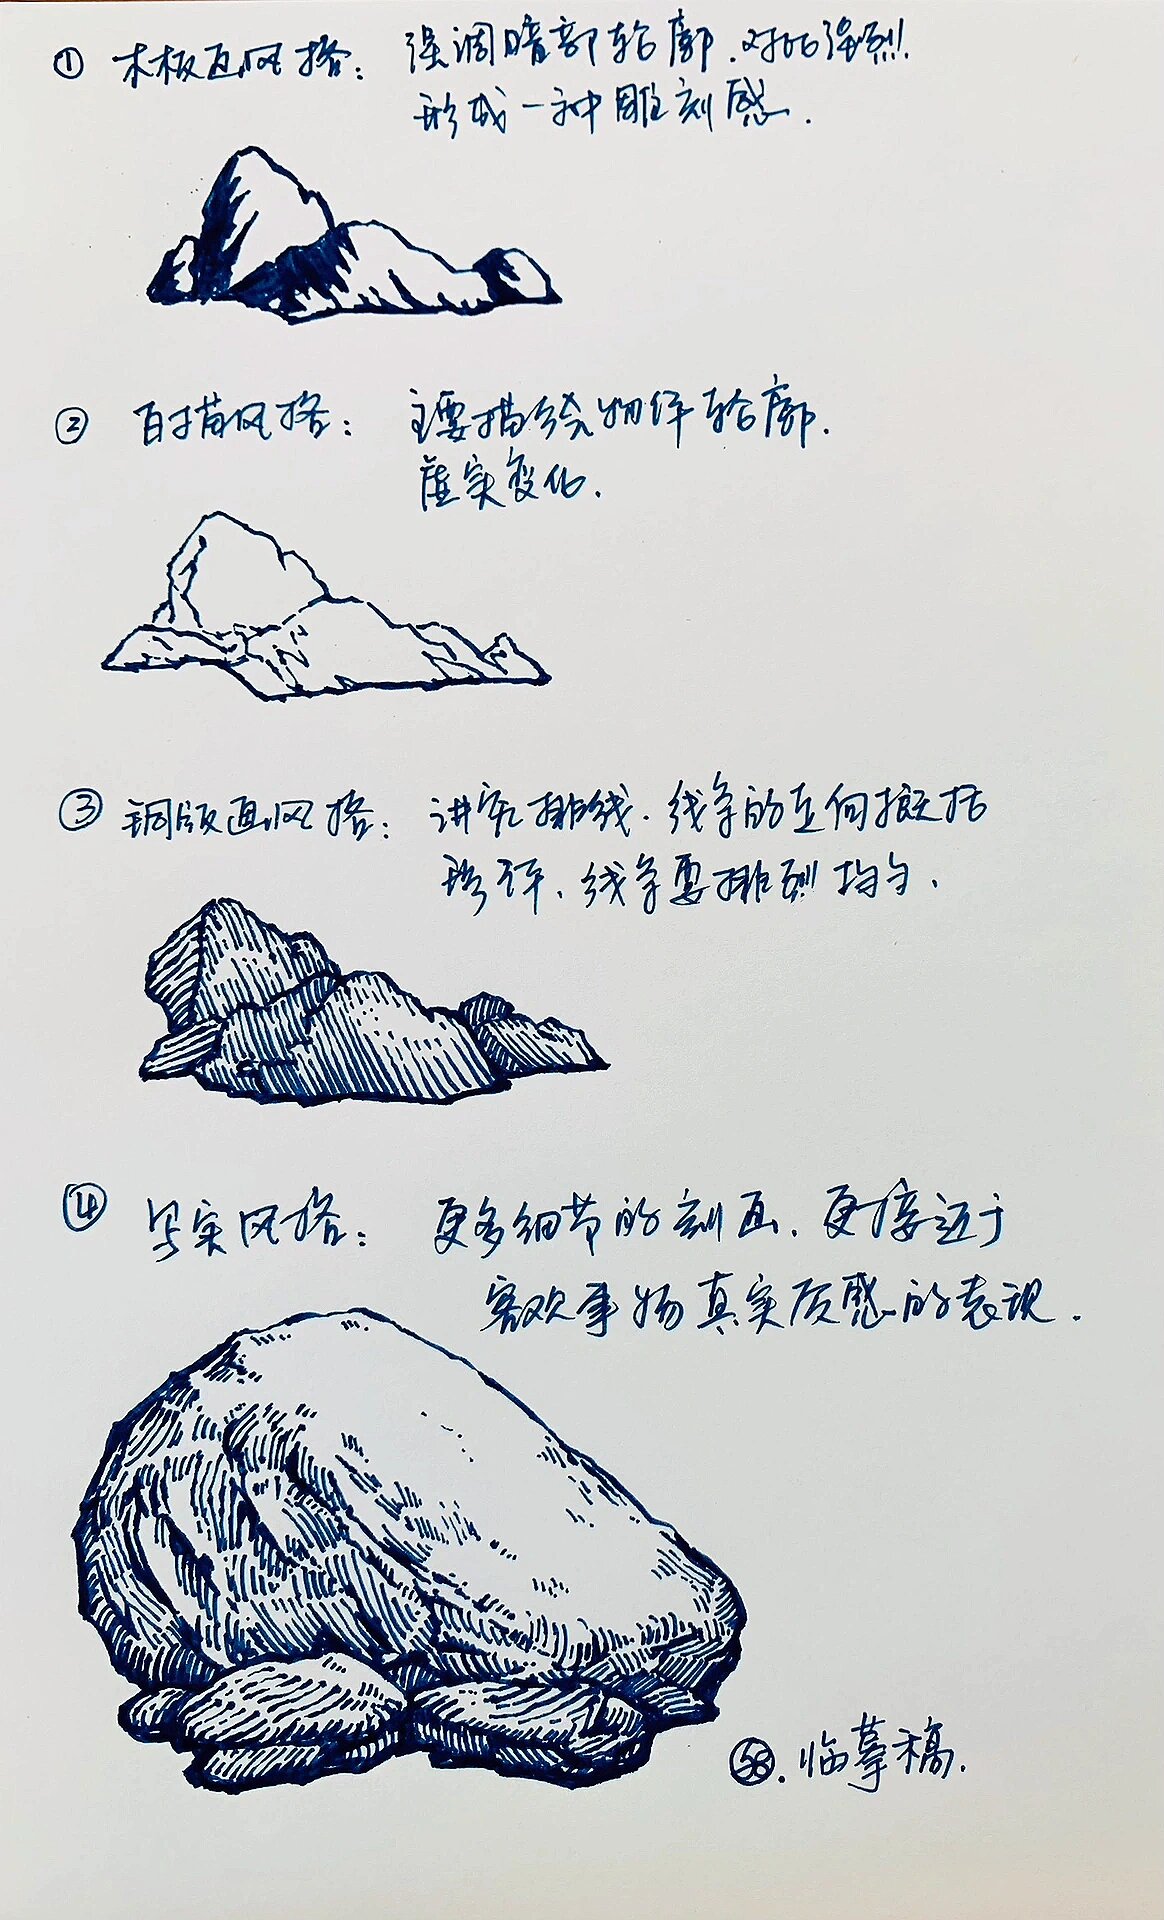 ① 木板画风格：强调暗部轮廓.对比强烈
形成一种雕刻感.
② 白描风格：主要描绘物体轮廓.
虚实变化.
③ 铜版画风格：讲究排线.线条的立向概括
线条要排列均匀.
④ 写实风格：更多细节的刻画.更接近于
客观事物真实质感的表现.
58.临摹稿.